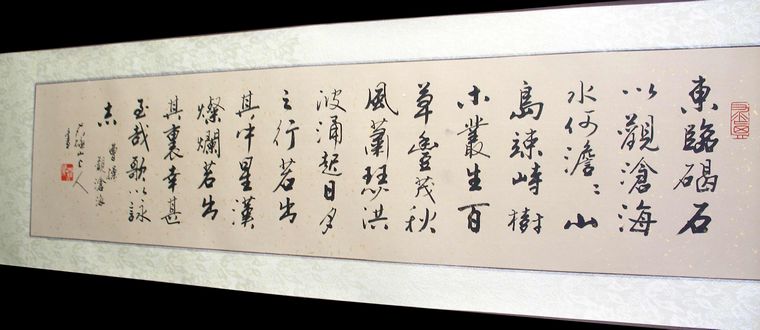 東臨碣石
以觀滄海
水何澹〻山
島竦峙樹
木叢生百
草豐茂秋
風蕭瑟洪
波涌起日月
之行若出
其中星漢
燦爛若出
其裏幸甚
至哉歌以詠
志
曹操
觀滄海
山人
書